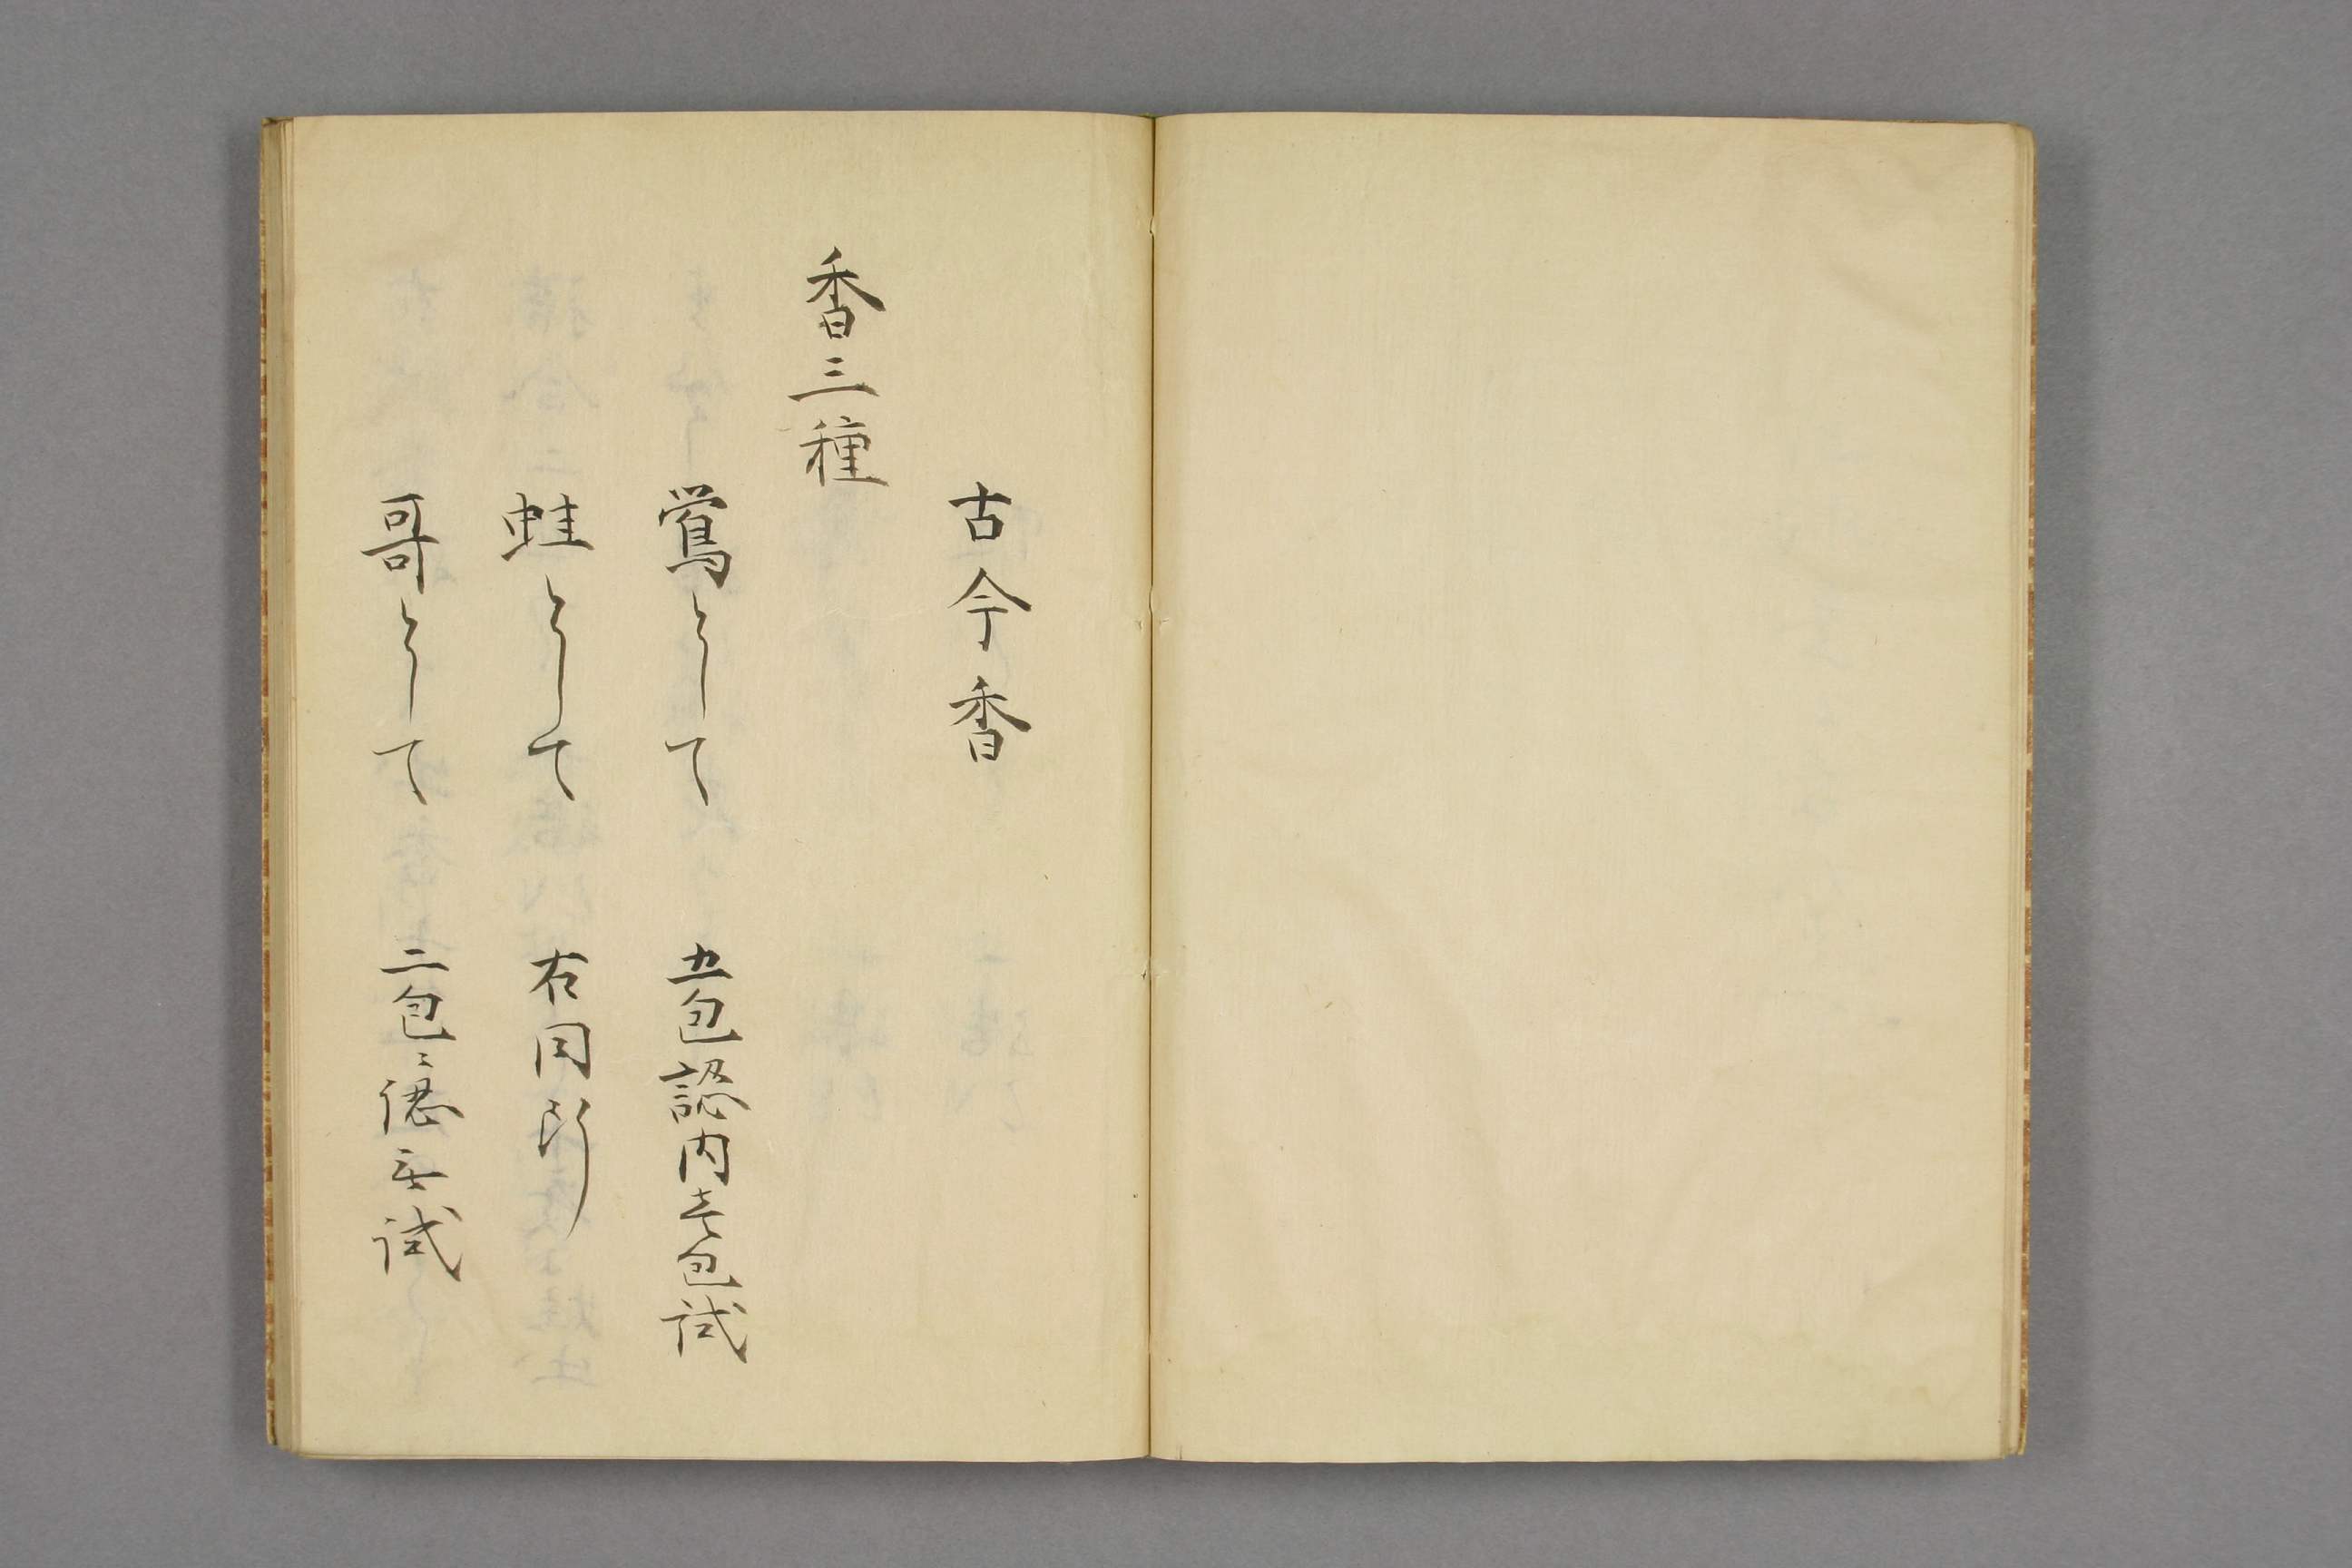 古今香
香三種
鴬として　五包認内壱包試
蛙として　右同断
哥として　二包ニ認無試